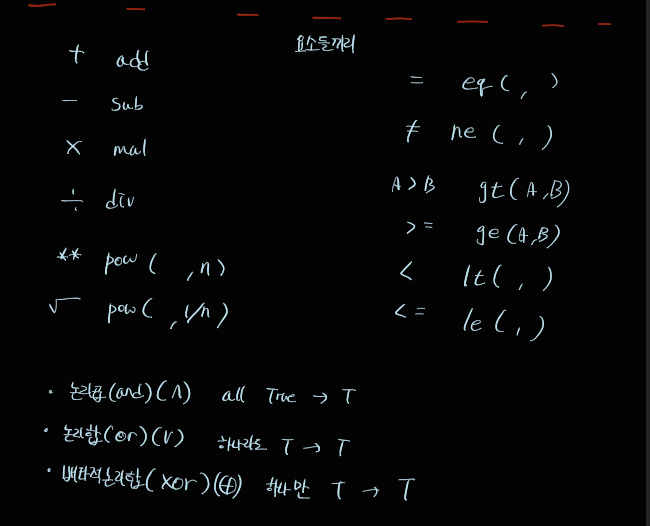 요소들끼리
+ add
- sub
× mal
÷ div
** pow ( , n)
√ pow( , 1/n)
= eq ( , )
≠ ne ( , )
A > B gt ( A ,B)
>= ge (A,B)
< lt ( , )
<= le ( , )
· 논리곱(and)(∧) all True → T
· 논리합(or)(∨) 하나라도 T → T
· 배타적논리합(xor)(⊕) 하나만 T → T